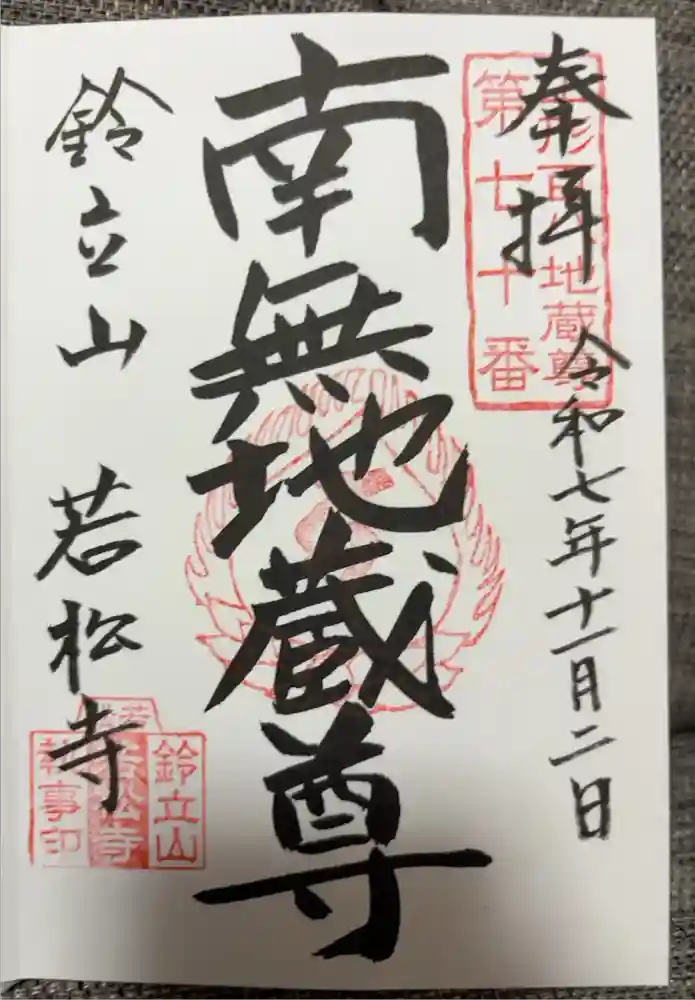 奉拝
令和七年十一月二日
第七十番
南無地蔵尊
鈴立山 若松寺
鈴立山
執事印